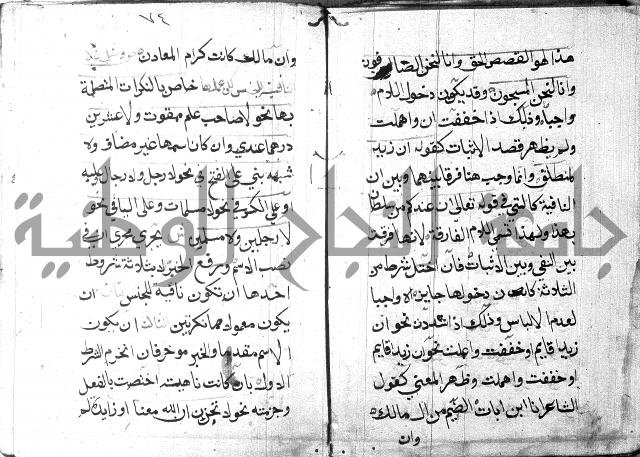 هذا لهو القصص الحق وانا لنحن الصافون
وانا لنحن المسبحون وقد يكون دخول اللام
واجبا وذلك اذا خففت ان واهملت
ولم يظهر قصد الاثبات كقوله ان زيد
لمنطلق وانما وجب هنا فرقا بينها وبين ان
النافية كالتي في قوله تعالى ان عندكم من سلطان
بهذا ولهذا تسمى اللام الفارقة لانها فرقت
بين النفي وبين الاثبات فان اختل شرط من
الثلاثة كان دخولها جايزا لا واجبا
لعدم الالباس وذلك اذا شددت نحو ان
زيدا قايم او خففت واعملت نحو ان زيدا قايم
او خففت واهملت وظهر المعنى كقول
الشاعر انا ابن اباة الضيم من ال مالك
وان
٧٤
وان مالك كانت كرام المعادن
النافية للجنس عملها خاص بالنكرات المتصلة
بها نحو لا صاحب علم ممقوت ولا عشرين
درهما عندي وان كان اسمها غير مضاف ولا
شبهه بني على الفتح في نحو لا رجل ولا رجال
او على الكسر في نحو لا مسلمات وعلى اليا في نحو
لا رجلين ولا مسلمين يجري مجرى ان في
نصب الاسم ورفع الخبر لا بثلاثة شروط
احدها ان تكون نافية للجنس ان
يكون معمولاها نكرتين الثالث ان يكون
الاسم مقدما والخبر موخرا فان انخرم الشرط
الاول بان كانت ناهية اختصت بالفعل
وجزمته نحو لا تحزن ان الله معنا او زايدة لم
جامعة النجاح الوطنية